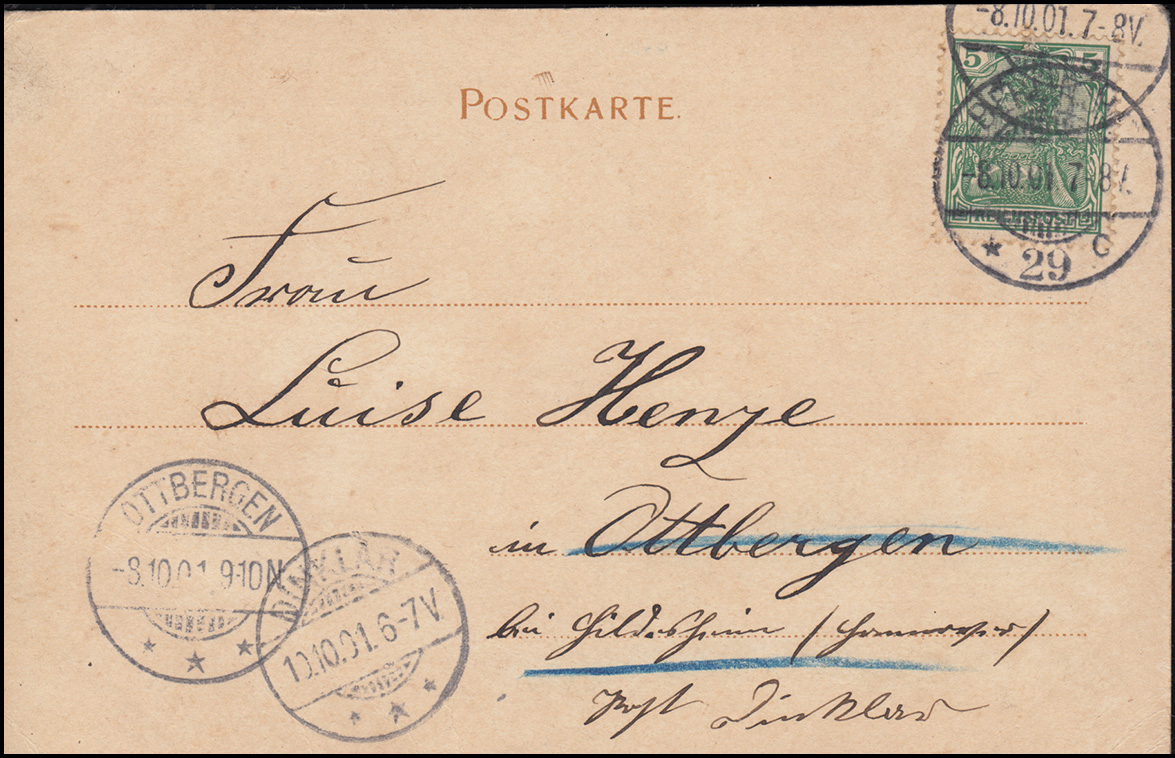 -8.10.01.7-8V.
5 5
POSTKARTE.
-8.10.01.7-8V.
REICHSPOST
* 29 c
Frau
Luise Henze
in Ottbergen
bei Hildesheim (Hannover)
Post Dinklar
OTTBERGEN
-8.10.01.9-10N.
* * *
DINKLAR
10.10.01.6-7V.
* * *